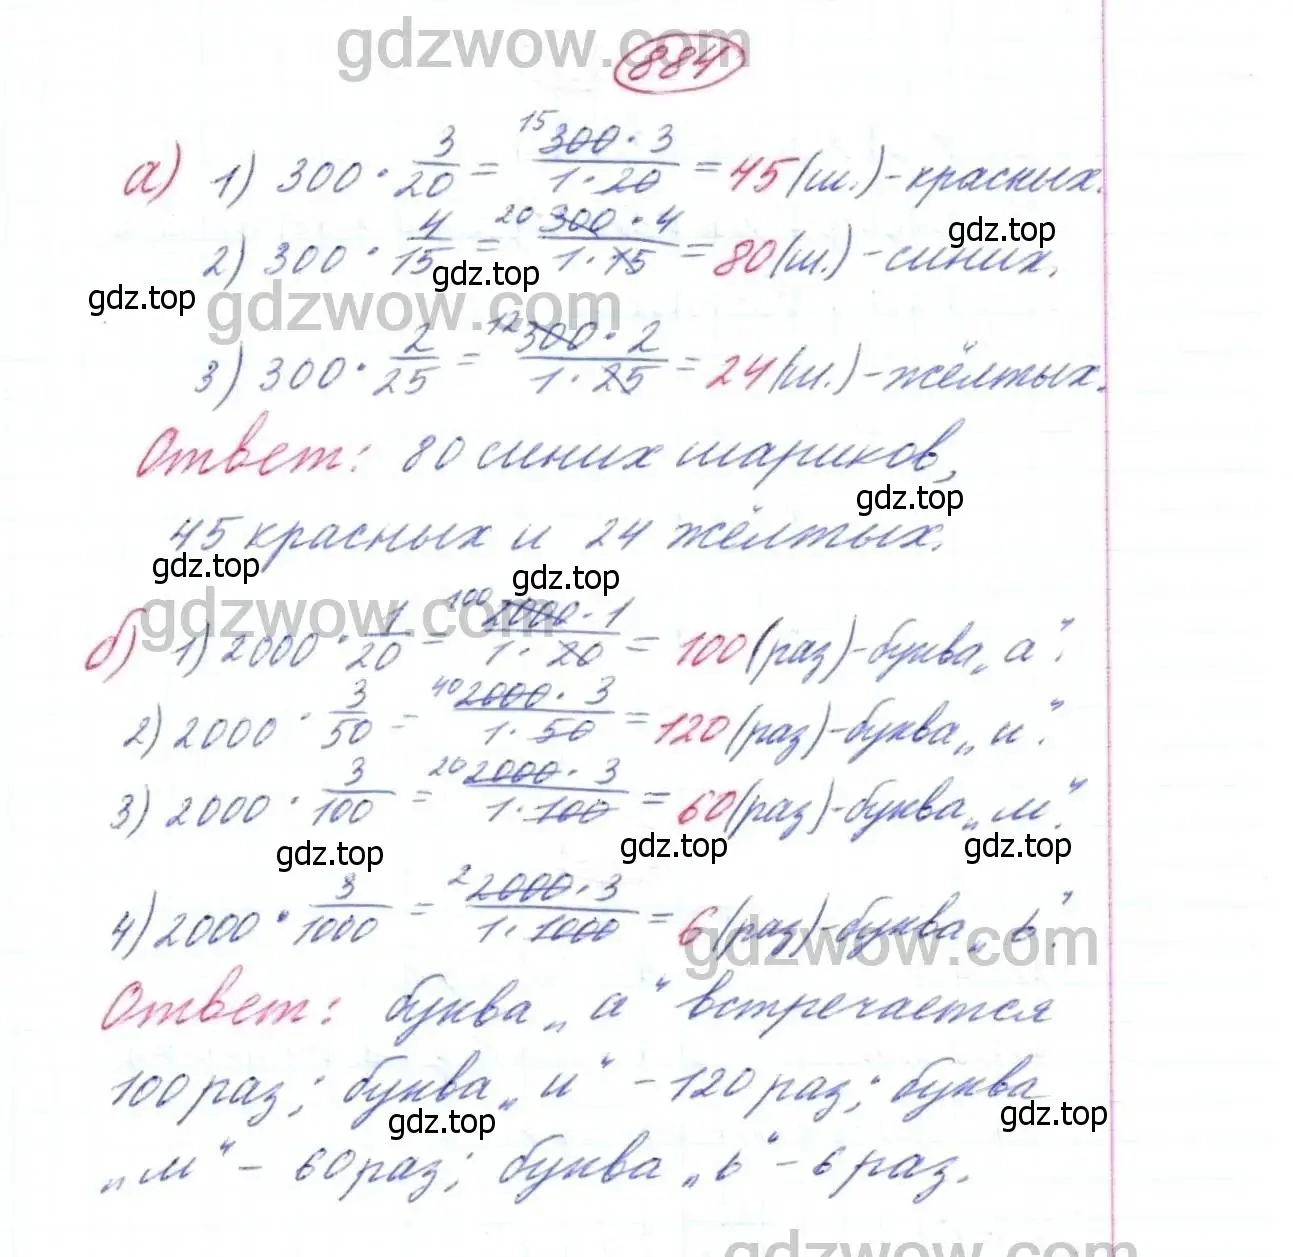 gdzwow.com
884
а) 1) 300 · 3/20 = 15 300 · 3 / 1 · 20 = 45 (ш.) - красных.
2) 300 · 4/15 = 20 300 · 4 / 1 · 15 = 80 (ш.) - синих.
gdz.top gdz.top gdz.top
gdzwow.com
3) 300 · 2/25 = 12 300 · 2 / 1 · 25 = 24 (ш.) - жёлтых.
Ответ: 80 синих шариков,
gdz.top
45 красных и 24 жёлтых.
gdz.top gdz.top
gdzwow.com
б) 1) 2000 · 1/20 = 100 2000 · 1 / 1 · 20 = 100 (раз) - буква „а".
2) 2000 · 3/50 = 40 2000 · 3 / 1 · 50 = 120 (раз) - буква „и".
3) 2000 · 3/100 = 20 2000 · 3 / 1 · 100 = 60 (раз) - буква „м".
gdz.top gdz.top gdz.top
4) 2000 · 3/1000 = 2 2000 · 3 / 1 · 1000 = 6 (раз) - буква „ь".
gdzwow.com
Ответ: буква „а" встречается
100 раз; буква „и" - 120 раз; буква
gdz.top gdz.top
„м" - 60 раз; буква „ь" - 6 раз.
gdzwow.com